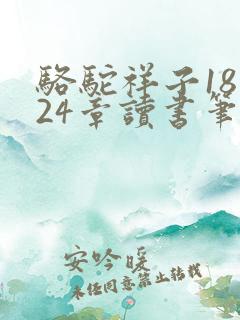 駱駝祥子18
24章讀書筆
安吟暖
未任同意禁止转载